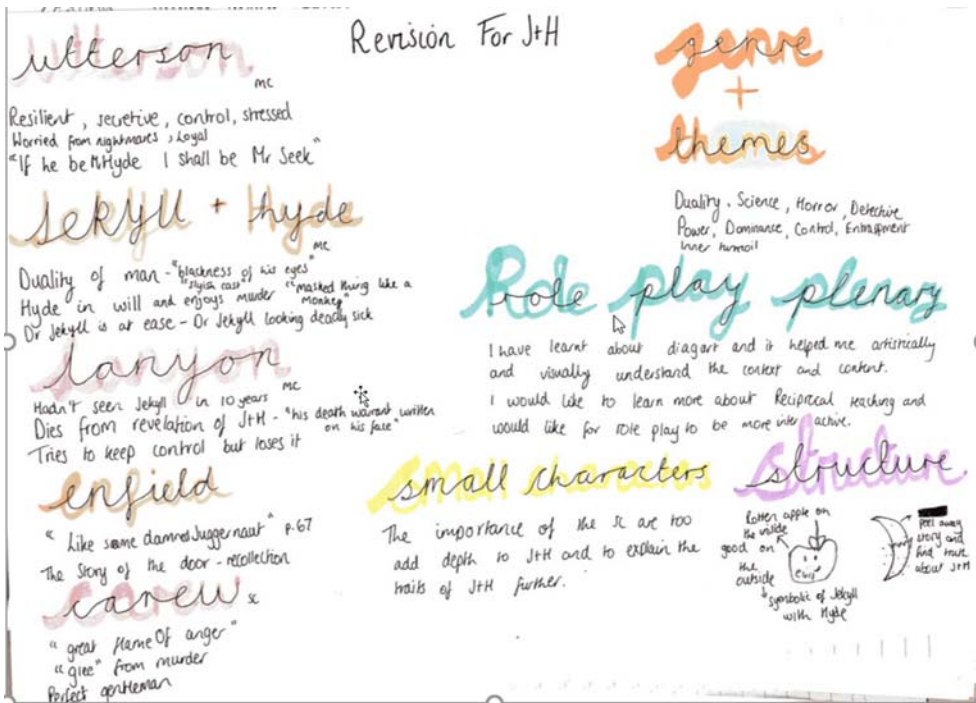 Revision For J+H
utterson
mc
Resilient, secretive, control, stressed
Worried from nightmares, Loyal
"If he be Mr Hyde I shall be Mr Seek"
Jekyll + Hyde
mc
Duality of man - "blackness of his eyes"
"slyish cast"
Hyde in will and enjoys murder "masked thing like a monkey"
Dr Jekyll is at ease - Dr Jekyll looking deadly sick
lanyon
mc
Hadn't seen Jekyll in 10 years
Dies from revelation of J+H - "his death warrant written
on his face"
Tries to keep control but loses it
enfield
"Like some damned Juggernaut" p.67
The Story of the door - recollection
carew sc
"great flame Of anger"
"glee" from murder
Perfect gentleman
genre
+
themes
Duality, Science, Horror, Detective
Power, Dominance, Control, Entrapment
Inner turmoil
Role play plenary
I have learnt about diagart and it helped me artistically
and visually understand the context and content.
I would like to learn more about Reciprocal teaching and
would like for role play to be more inter active.
small characters
The importance of the sc are too
add depth to J+H and to explain the
traits of J+H further.
structure
Rotten apple on
the inside
good on
the
outside
evil
symbolic of Jekyll
with Hyde
peel away
story and
find truth
about J+H